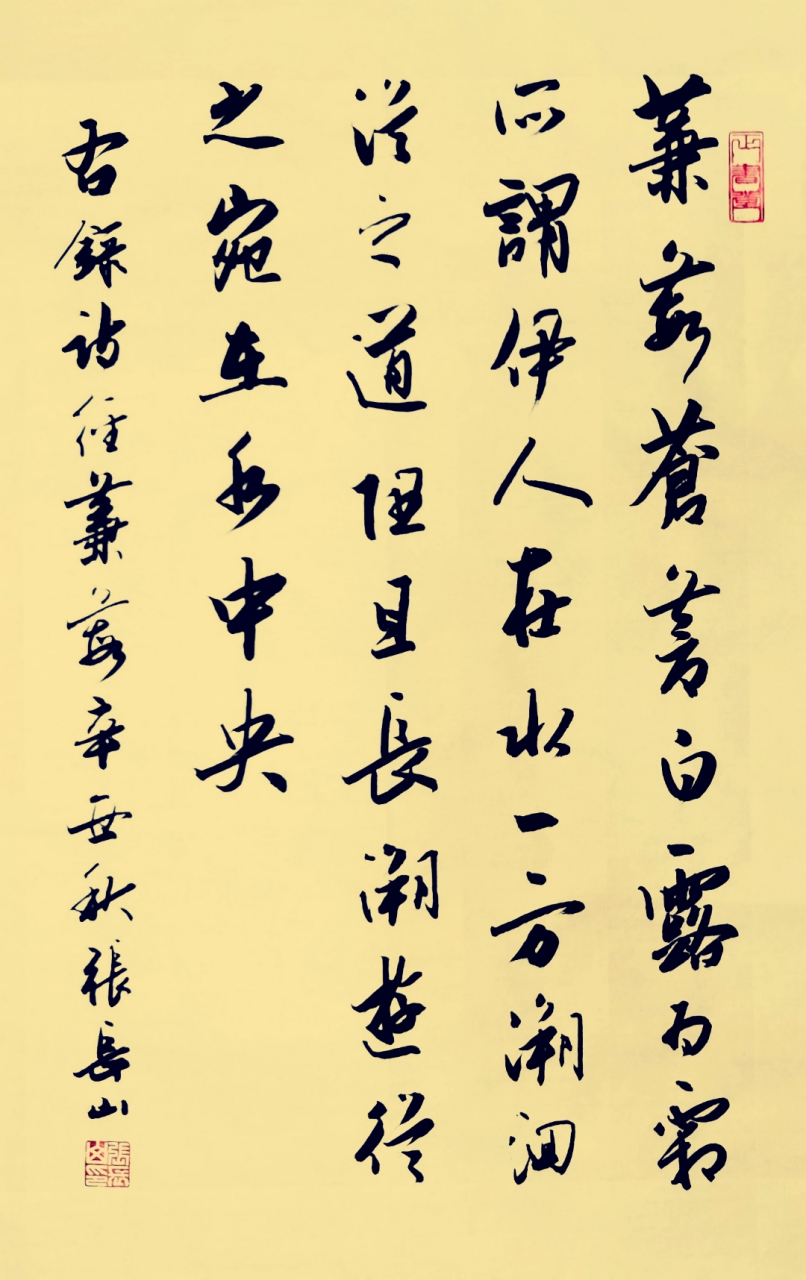 蒹葭蒼蒼白露为霜
所謂伊人在水一方溯洄
從之道阻且長溯遊從
之宛在水中央
右錄詩經蒹葭辛丑秋張山